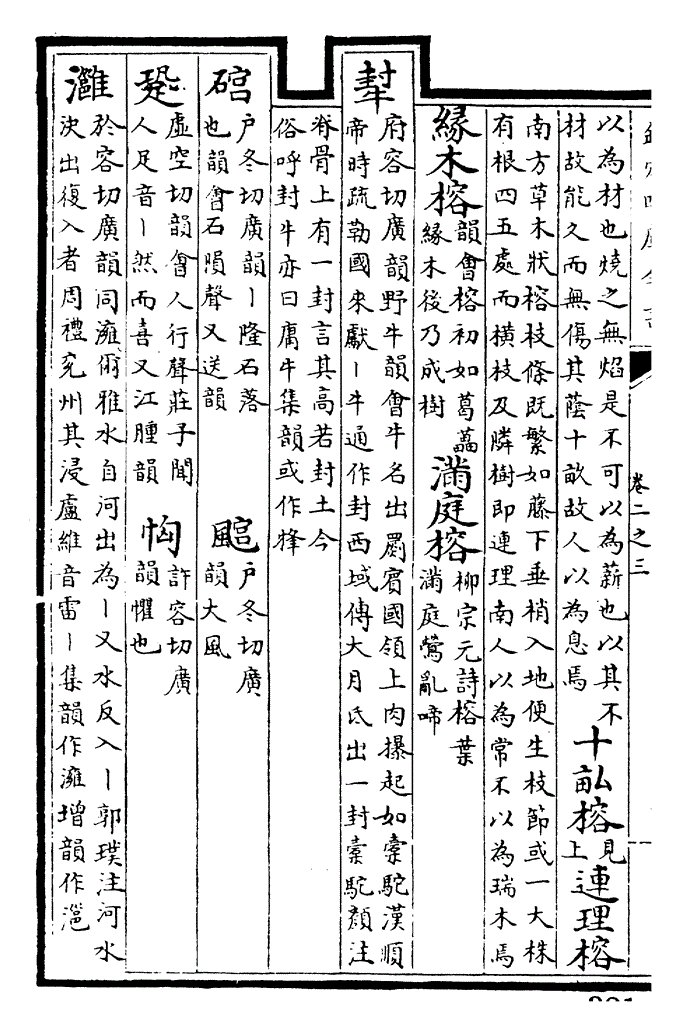 卷二之三
以為材也燒之無焰是不可以為薪也以其不
材故能久而無傷其蔭十畝故人以為息焉
十畆榕
見
上
連理榕
南方草木狀榕枝條既繁如藤下垂梢入地便生枝節或一大株
有根四五處而橫枝及隣樹即連理南人以為常不以為瑞木焉
緣木榕
韻會榕初如葛藟
緣木後乃成樹
滿庭榕
柳宗元詩榕葉
滿庭鶯亂啼
犎
府容切廣韻野牛韻會牛名出罽賓國領上肉㩧起如槖駝漢順
帝時疏勒國來獻丨牛通作封西域傳大月氏出一封槖駝顔注
脊骨上有一封言其高若封土今
俗呼封牛亦曰庸牛集韻或作㸼
戶冬切廣韻丨隆石落
也韻會石隕聲又送韻
戶冬切廣
韻大風
跫
虛空切韻會人行聲莊子聞
人足音丨然而喜又江腫韻
恟
許容切廣
韻懼也
灉
於容切廣韻同澭爾雅水自河出為丨又水反入丨郭璞注河水
決出復入者周禮兖州其浸盧維音雷丨集韻作澭增韻作滬